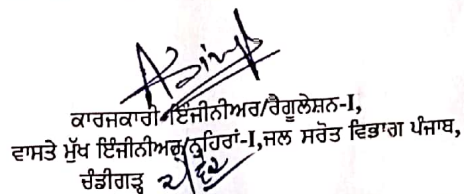 ਕਾਰਜਕਾਰੀ ਇੰਜੀਨੀਅਰ/ਰੈਗੂਲੇਸ਼ਨ-I,
ਵਾਸਤੇ ਮੁੱਖ ਇੰਜੀਨੀਅਰ/ਨਹਿਰਾਂ-I,ਜਲ ਸਰੋਤ ਵਿਭਾਗ ਪੰਜਾਬ,
ਚੰਡੀਗੜ੍ਹ